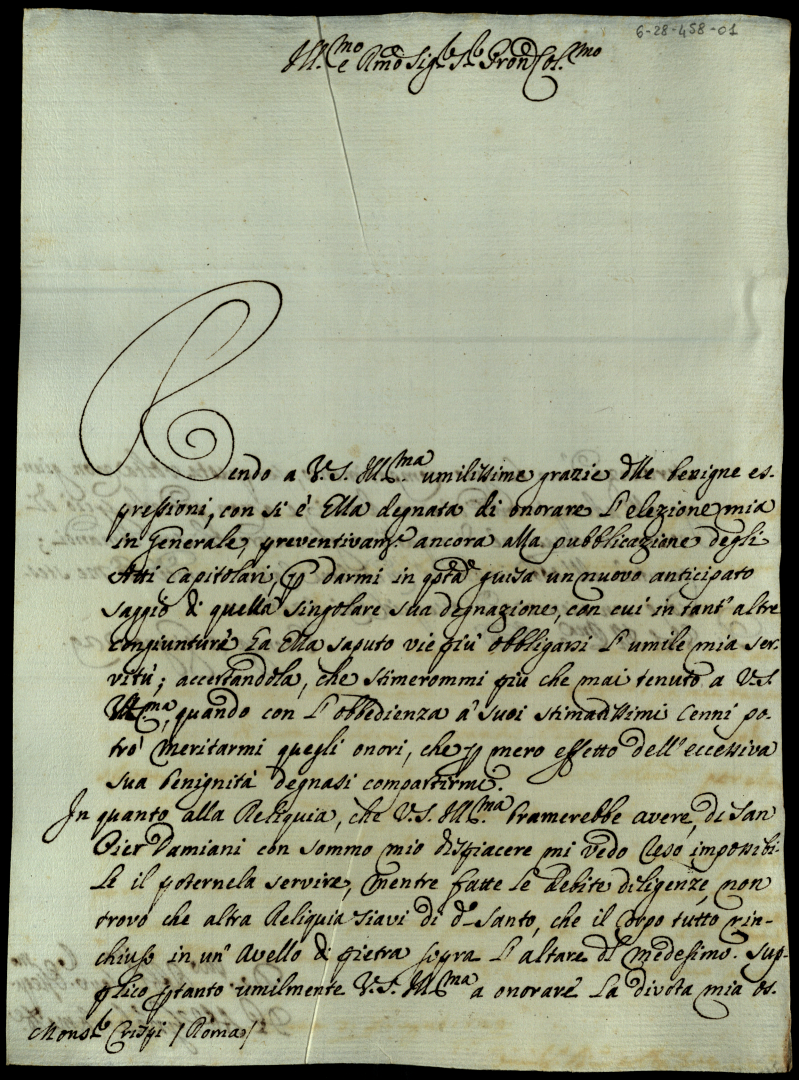 6-28-458-01
Ill.mo e Rmo Sig.r S.r Pron Col.mo
Rendo a V.S. Ill.ma umilissime grazie dlle benigne es-
pressioni, con si è Ella degnata di onorare l'elezione mia
in Generale, preventivam.e ancora alla pubblicazione degli
Atti Capitolari, p darmi in qsta guisa un nuovo anticipato
saggio di quella singolare sua degnazione, con cui in tant'altre
congiunture ha Ella saputo vie più obbligarsi l'umile mia ser-
vitù; accertandola, che stimerommi più che mai tenuto a V.S.
Ill.ma, quando con l'obbedienza a' suoi stimatissimi cenni po-
trò meritarmi quegli onori, che p mero effetto dell'eccessiva
sua benignità degnasi compartirmi.
In quanto alla Reliquia, che V.S. Ill.ma bramerebbe avere, di San
Pier Damiani con sommo mio dispiacere mi vedo reso impossibi-
le il poternela servire, mentre fatte le debite diligenze, non
trovo che altra Reliquia siavi di do Santo, che il corpo tutto rin-
chiuso in un' Avello di pietra sopra l'altare dl medesimo. Sup-
plico ptanto umilmente V.S. Ill.ma a onorare la divota mia os-
Mons.r Crispi / Roma /